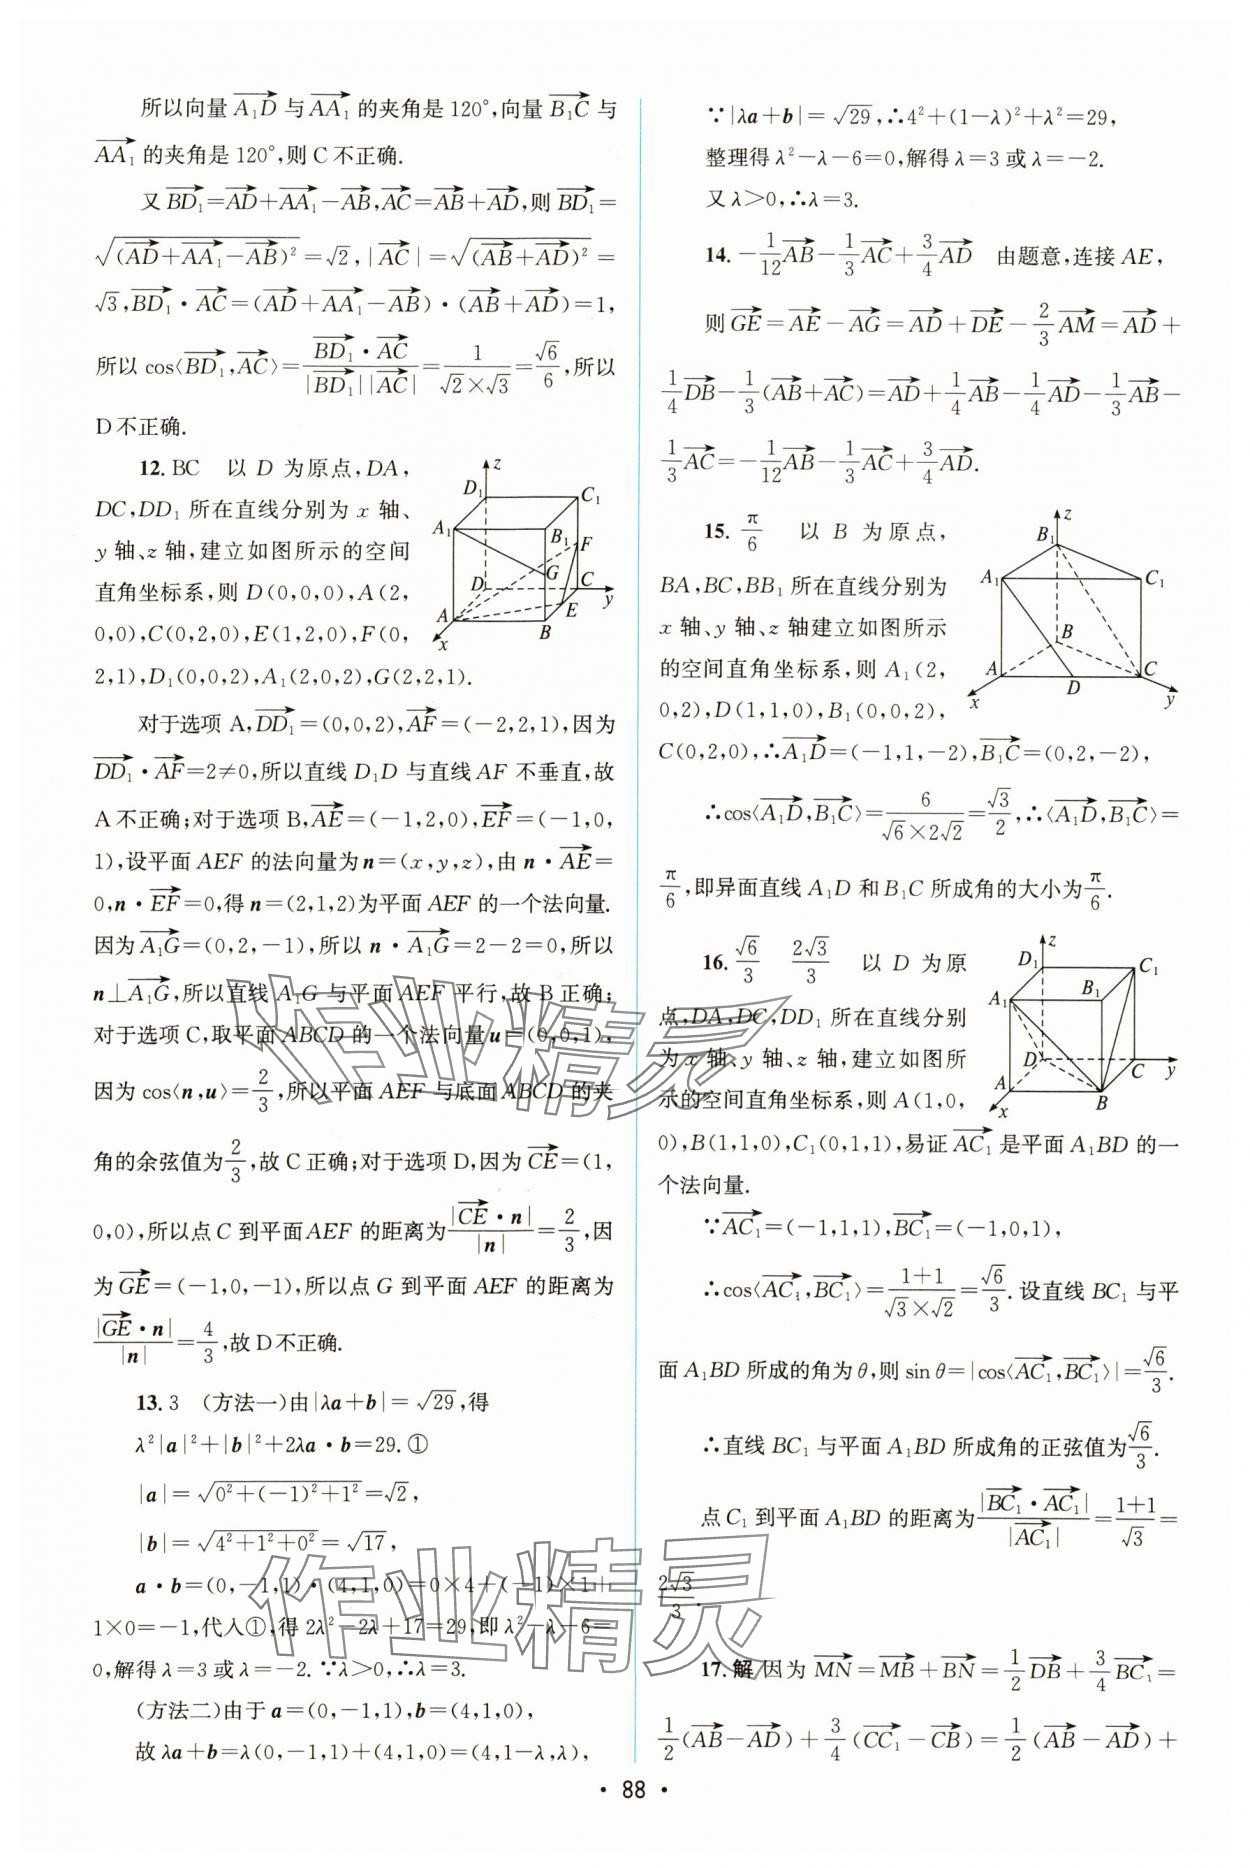 所以向量 $\overrightarrow{A_1D}$ 与 $\overrightarrow{AA_1}$ 的夹角是 120°,向量 $\overrightarrow{B_1C}$ 与
$\overrightarrow{AA_1}$ 的夹角是 120°,则 C 不正确.
又 $\overrightarrow{BD_1}=\overrightarrow{AD}+\overrightarrow{AA_1}-\overrightarrow{AB},\overrightarrow{AC}=\overrightarrow{AB}+\overrightarrow{AD}$,则 $\overrightarrow{BD_1}=$
$\sqrt{(\overrightarrow{AD}+\overrightarrow{AA_1}-\overrightarrow{AB})^2}=\sqrt{2},|\overrightarrow{AC}|=\sqrt{(\overrightarrow{AB}+\overrightarrow{AD})^2}=$
$\sqrt{3},\overrightarrow{BD_1}\cdot\overrightarrow{AC}=(\overrightarrow{AD}+\overrightarrow{AA_1}-\overrightarrow{AB})\cdot(\overrightarrow{AB}+\overrightarrow{AD})=1,$
所以 $\cos\langle\overrightarrow{BD_1},\overrightarrow{AC}\rangle=\frac{\overrightarrow{BD_1}\cdot\overrightarrow{AC}}{|\overrightarrow{BD_1}||\overrightarrow{AC}|}=\frac{1}{\sqrt{2}\times\sqrt{3}}=\frac{\sqrt{6}}{6}$,所以
D 不正确.
12. BC 以 D 为原点,DA,
DC,DD₁ 所在直线分别为 x 轴、
y 轴、z 轴,建立如图所示的空间
直角坐标系,则 D(0,0,0),A(2,
0,0),C(0,2,0),E(1,2,0),F(0,
2,1),D₁(0,0,2),A₁(2,0,2),G(2,2,1).
z
D₁ C₁
A₁ B₁ F
G
D C y
A E
x B
对于选项 A,$\overrightarrow{DD_1}=(0,0,2),\overrightarrow{AF}=(-2,2,1)$,因为
$\overrightarrow{DD_1}\cdot\overrightarrow{AF}=2\neq0$,所以直线 D₁D 与直线 AF 不垂直,故
A 不正确;对于选项 B,$\overrightarrow{AE}=(-1,2,0),\overrightarrow{EF}=(-1,0,$
1),设平面 AEF 的法向量为 n=(x,y,z),由 $n\cdot\overrightarrow{AE}=$
$0,n\cdot\overrightarrow{EF}=0$,得 n=(2,1,2)为平面 AEF 的一个法向量.
因为 $\overrightarrow{A_1G}=(0,2,-1)$,所以 $n\cdot\overrightarrow{A_1G}=2-2=0$,所以
$n\perp\overrightarrow{A_1G}$,所以直线 A₁G 与平面 AEF 平行,故 B 正确;
对于选项 C,取平面 ABCD 的一个法向量 u=(0,0,1),
因为 $\cos\langle n,u\rangle=\frac{2}{3}$,所以平面 AEF 与底面 ABCD 的夹
角的余弦值为 $\frac{2}{3}$,故 C 正确;对于选项 D,因为 $\overrightarrow{CE}=(1,$
0,0),所以点 C 到平面 AEF 的距离为 $\frac{|\overrightarrow{CE}\cdot n|}{|n|}=\frac{2}{3}$,因
为 $\overrightarrow{GE}=(-1,0,-1)$,所以点 G 到平面 AEF 的距离为
$\frac{|\overrightarrow{GE}\cdot n|}{|n|}=\frac{4}{3}$,故 D 不正确.
13. 3 (方法一)由|λa+b|=$\sqrt{29}$,得
λ²|a|²+|b|²+2λa·b=29.①
|a|=$\sqrt{0^2+(-1)^2+1^2}=\sqrt{2}$,
|b|=$\sqrt{4^2+1^2+0^2}=\sqrt{17}$,
a·b=(0,-1,1)·(4,1,0)=0×4+(-1)×1+
1×0=-1,代入①,得 2λ²-2λ+17=29,即 λ²-λ-6=
0,解得 λ=3 或 λ=-2.∵λ>0,∴λ=3.
(方法二)由于 a=(0,-1,1),b=(4,1,0),
故 λa+b=λ(0,-1,1)+(4,1,0)=(4,1-λ,λ),
∵|λa+b|=$\sqrt{29}$,∴4²+(1-λ)²+λ²=29,
整理得 λ²-λ-6=0,解得 λ=3 或 λ=-2.
又 λ>0,∴λ=3.
14. $-\frac{1}{12}\overrightarrow{AB}-\frac{1}{3}\overrightarrow{AC}+\frac{3}{4}\overrightarrow{AD}$ 由题意,连接 AE,
则 $\overrightarrow{GE}=\overrightarrow{AE}-\overrightarrow{AG}=\overrightarrow{AD}+\overrightarrow{DE}-\frac{2}{3}\overrightarrow{AM}=\overrightarrow{AD}+$
$\frac{1}{4}\overrightarrow{DB}-\frac{1}{3}(\overrightarrow{AB}+\overrightarrow{AC})=\overrightarrow{AD}+\frac{1}{4}\overrightarrow{AB}-\frac{1}{4}\overrightarrow{AD}-\frac{1}{3}\overrightarrow{AB}-$
$\frac{1}{3}\overrightarrow{AC}=-\frac{1}{12}\overrightarrow{AB}-\frac{1}{3}\overrightarrow{AC}+\frac{3}{4}\overrightarrow{AD}.$
15. $\frac{\pi}{6}$ 以 B 为原点,
BA,BC,BB₁ 所在直线分别为
x 轴、y 轴、z 轴建立如图所示
的空间直角坐标系,则 A₁(2,
0,2),D(1,1,0),B₁(0,0,2),
z
B₁
A₁ C₁
B
A C
x D y
C(0,2,0),∴$\overrightarrow{A_1D}=(-1,1,-2),\overrightarrow{B_1C}=(0,2,-2),$
∴$\cos\langle\overrightarrow{A_1D},\overrightarrow{B_1C}\rangle=\frac{6}{\sqrt{6}\times2\sqrt{2}}=\frac{\sqrt{3}}{2}$,∴$\langle\overrightarrow{A_1D},\overrightarrow{B_1C}\rangle=$
$\frac{\pi}{6}$,即异面直线 A₁D 和 B₁C 所成角的大小为 $\frac{\pi}{6}$.
16. $\frac{\sqrt{6}}{3}$ $\frac{2\sqrt{3}}{3}$ 以 D 为原
点,DA,DC,DD₁ 所在直线分别
为 x 轴、y 轴、z 轴,建立如图所
示的空间直角坐标系,则 A(1,0,
z
D₁ C₁
A₁ B₁
D C y
A B
x
0),B(1,1,0),C₁(0,1,1),易证 $\overrightarrow{AC_1}$ 是平面 A₁BD 的一
个法向量.
∵$\overrightarrow{AC_1}=(-1,1,1),\overrightarrow{BC_1}=(-1,0,1),$
∴$\cos\langle\overrightarrow{AC_1},\overrightarrow{BC_1}\rangle=\frac{1+1}{\sqrt{3}\times\sqrt{2}}=\frac{\sqrt{6}}{3}$.设直线 BC₁ 与平
面 A₁BD 所成的角为 θ,则 $\sin\theta=|\cos\langle\overrightarrow{AC_1},\overrightarrow{BC_1}\rangle|=\frac{\sqrt{6}}{3}$.
∴直线 BC₁ 与平面 A₁BD 所成角的正弦值为 $\frac{\sqrt{6}}{3}$.
点 C₁ 到平面 A₁BD 的距离为 $\frac{|\overrightarrow{BC_1}\cdot\overrightarrow{AC_1}|}{|\overrightarrow{AC_1}|}=\frac{1+1}{\sqrt{3}}=$
$\frac{2\sqrt{3}}{3}$.
17. 解 因为 $\overrightarrow{MN}=\overrightarrow{MB}+\overrightarrow{BN}=\frac{1}{2}\overrightarrow{DB}+\frac{3}{4}\overrightarrow{BC_1}=$
$\frac{1}{2}(\overrightarrow{AB}-\overrightarrow{AD})+\frac{3}{4}(\overrightarrow{CC_1}-\overrightarrow{CB})=\frac{1}{2}(\overrightarrow{AB}-\overrightarrow{AD})+$
作业精灵
作业精灵
· 88 ·